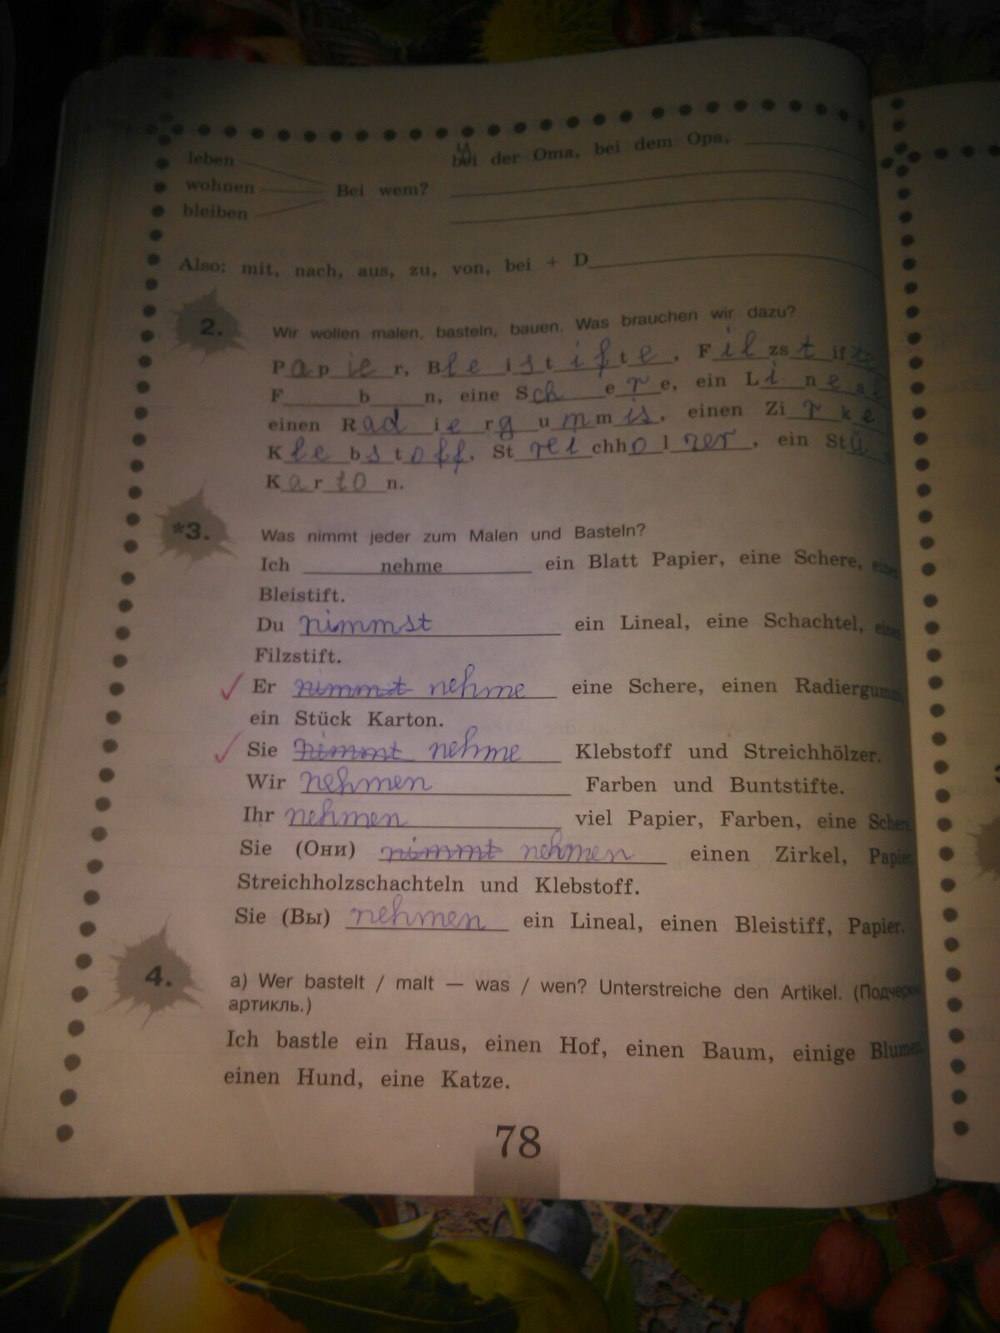 leben
wohnen
bleiben
Bei wem?
bei der Oma, bei dem Opa,
Also: mit, nach, aus, zu, von, bei + D
2.
Wir wollen malen, basteln, bauen. Was brauchen wir dazu?
Papier, Bleistifte, Filzstift
F______b______n, eine Schere, ein Linea
einen Radiergummis, einen Zirke
Klebstoff, Streichholzer, ein Stü
Karton.
*3.
Was nimmt jeder zum Malen und Basteln?
Ich nehme ein Blatt Papier, eine Schere,
Bleistift.
Du nimmst ein Lineal, eine Schachtel,
Filzstift.
Er nimmt nehme eine Schere, einen Radiergummi,
ein Stück Karton.
Sie nimmt nehme Klebstoff und Streichhölzer.
Wir nehmen Farben und Buntstifte.
Ihr nehmen viel Papier, Farben, eine Schere
Sie (Они) nimmt nehmen einen Zirkel, Papier
Streichholzschachteln und Klebstoff.
Sie (Вы) nehmen ein Lineal, einen Bleistiff, Papier.
4.
a) Wer bastelt / malt — was / wen? Unterstreiche den Artikel. (Подчерк
артикль.)
Ich bastle ein Haus, einen Hof, einen Baum, einige Blumen
einen Hund, eine Katze.
78